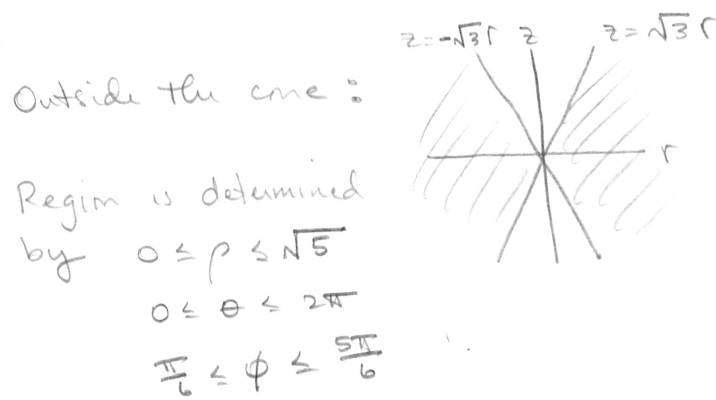 z=-√3 r z z= √3 r
Outside the cone :
r
Region is determined
by 0 ≤ ρ ≤ √5
0 ≤ θ ≤ 2π
π/6 ≤ ϕ ≤ 5π/6